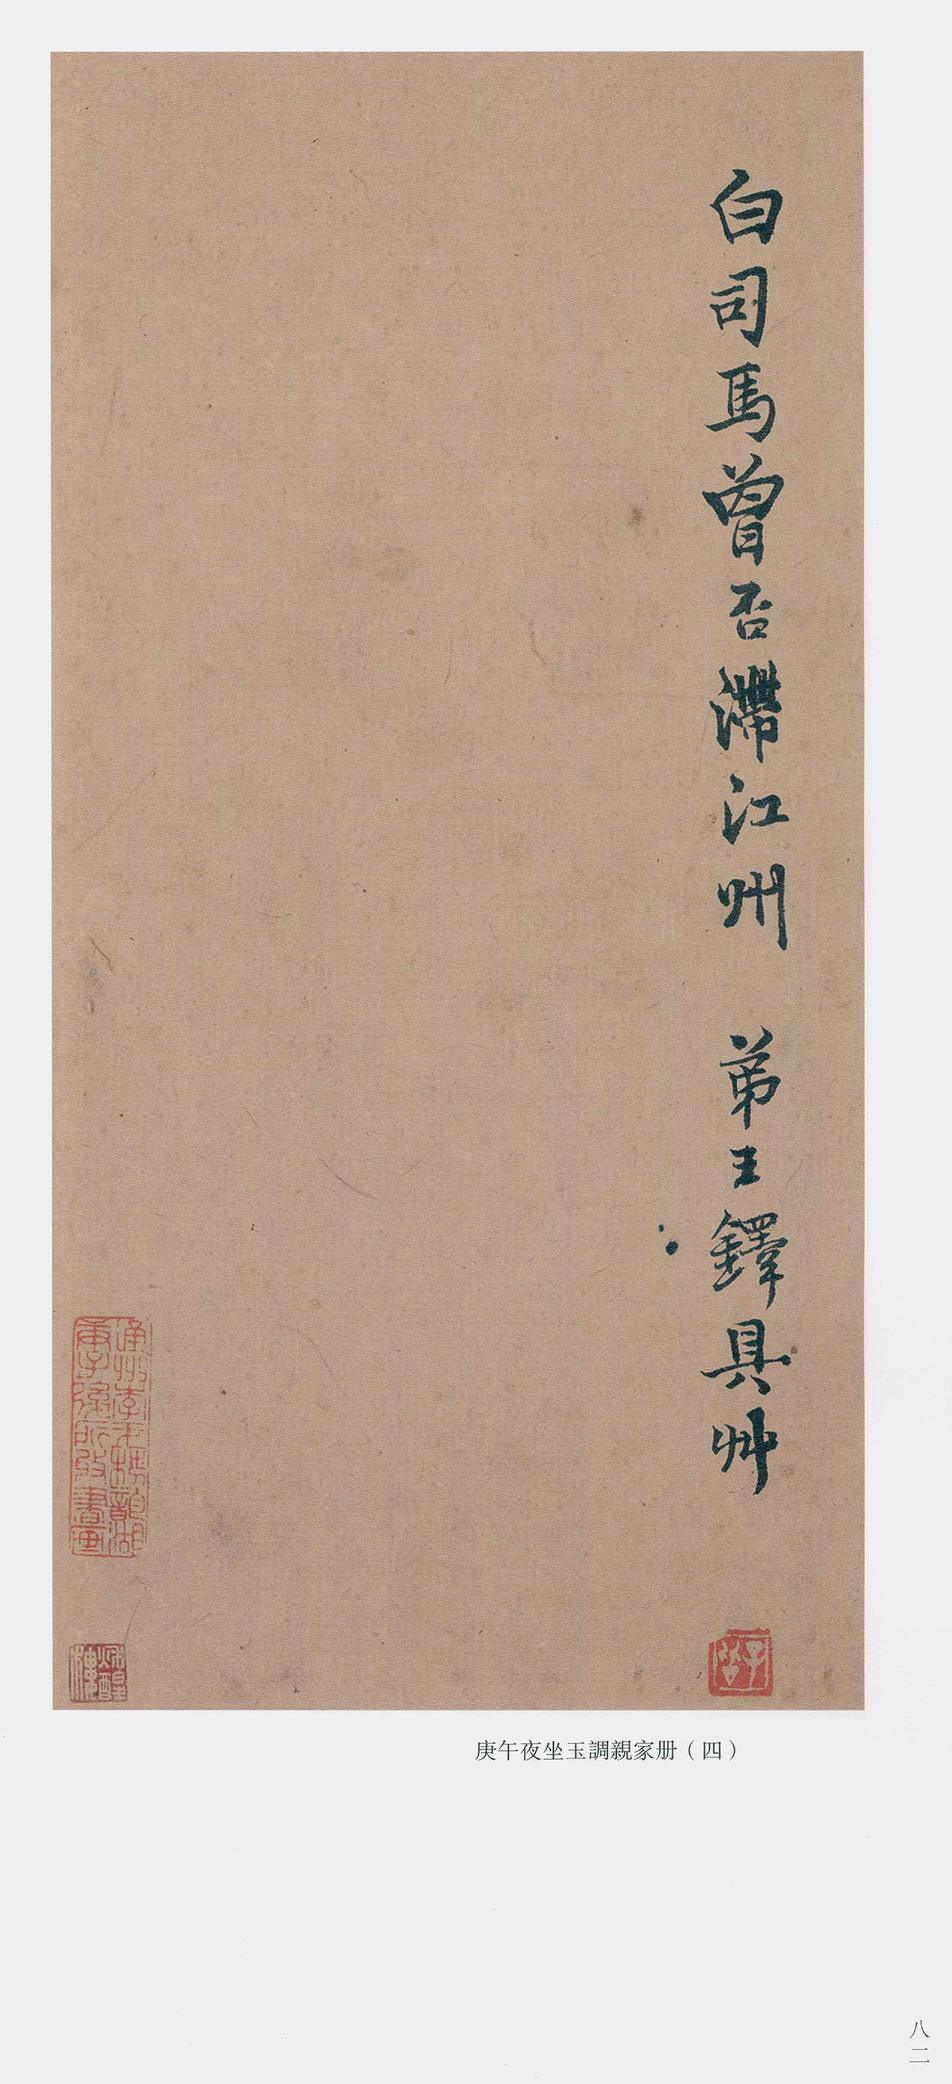 白司馬曾否滯江州　弟王鐸具艸
庚午夜坐玉調親家册（四）
八二